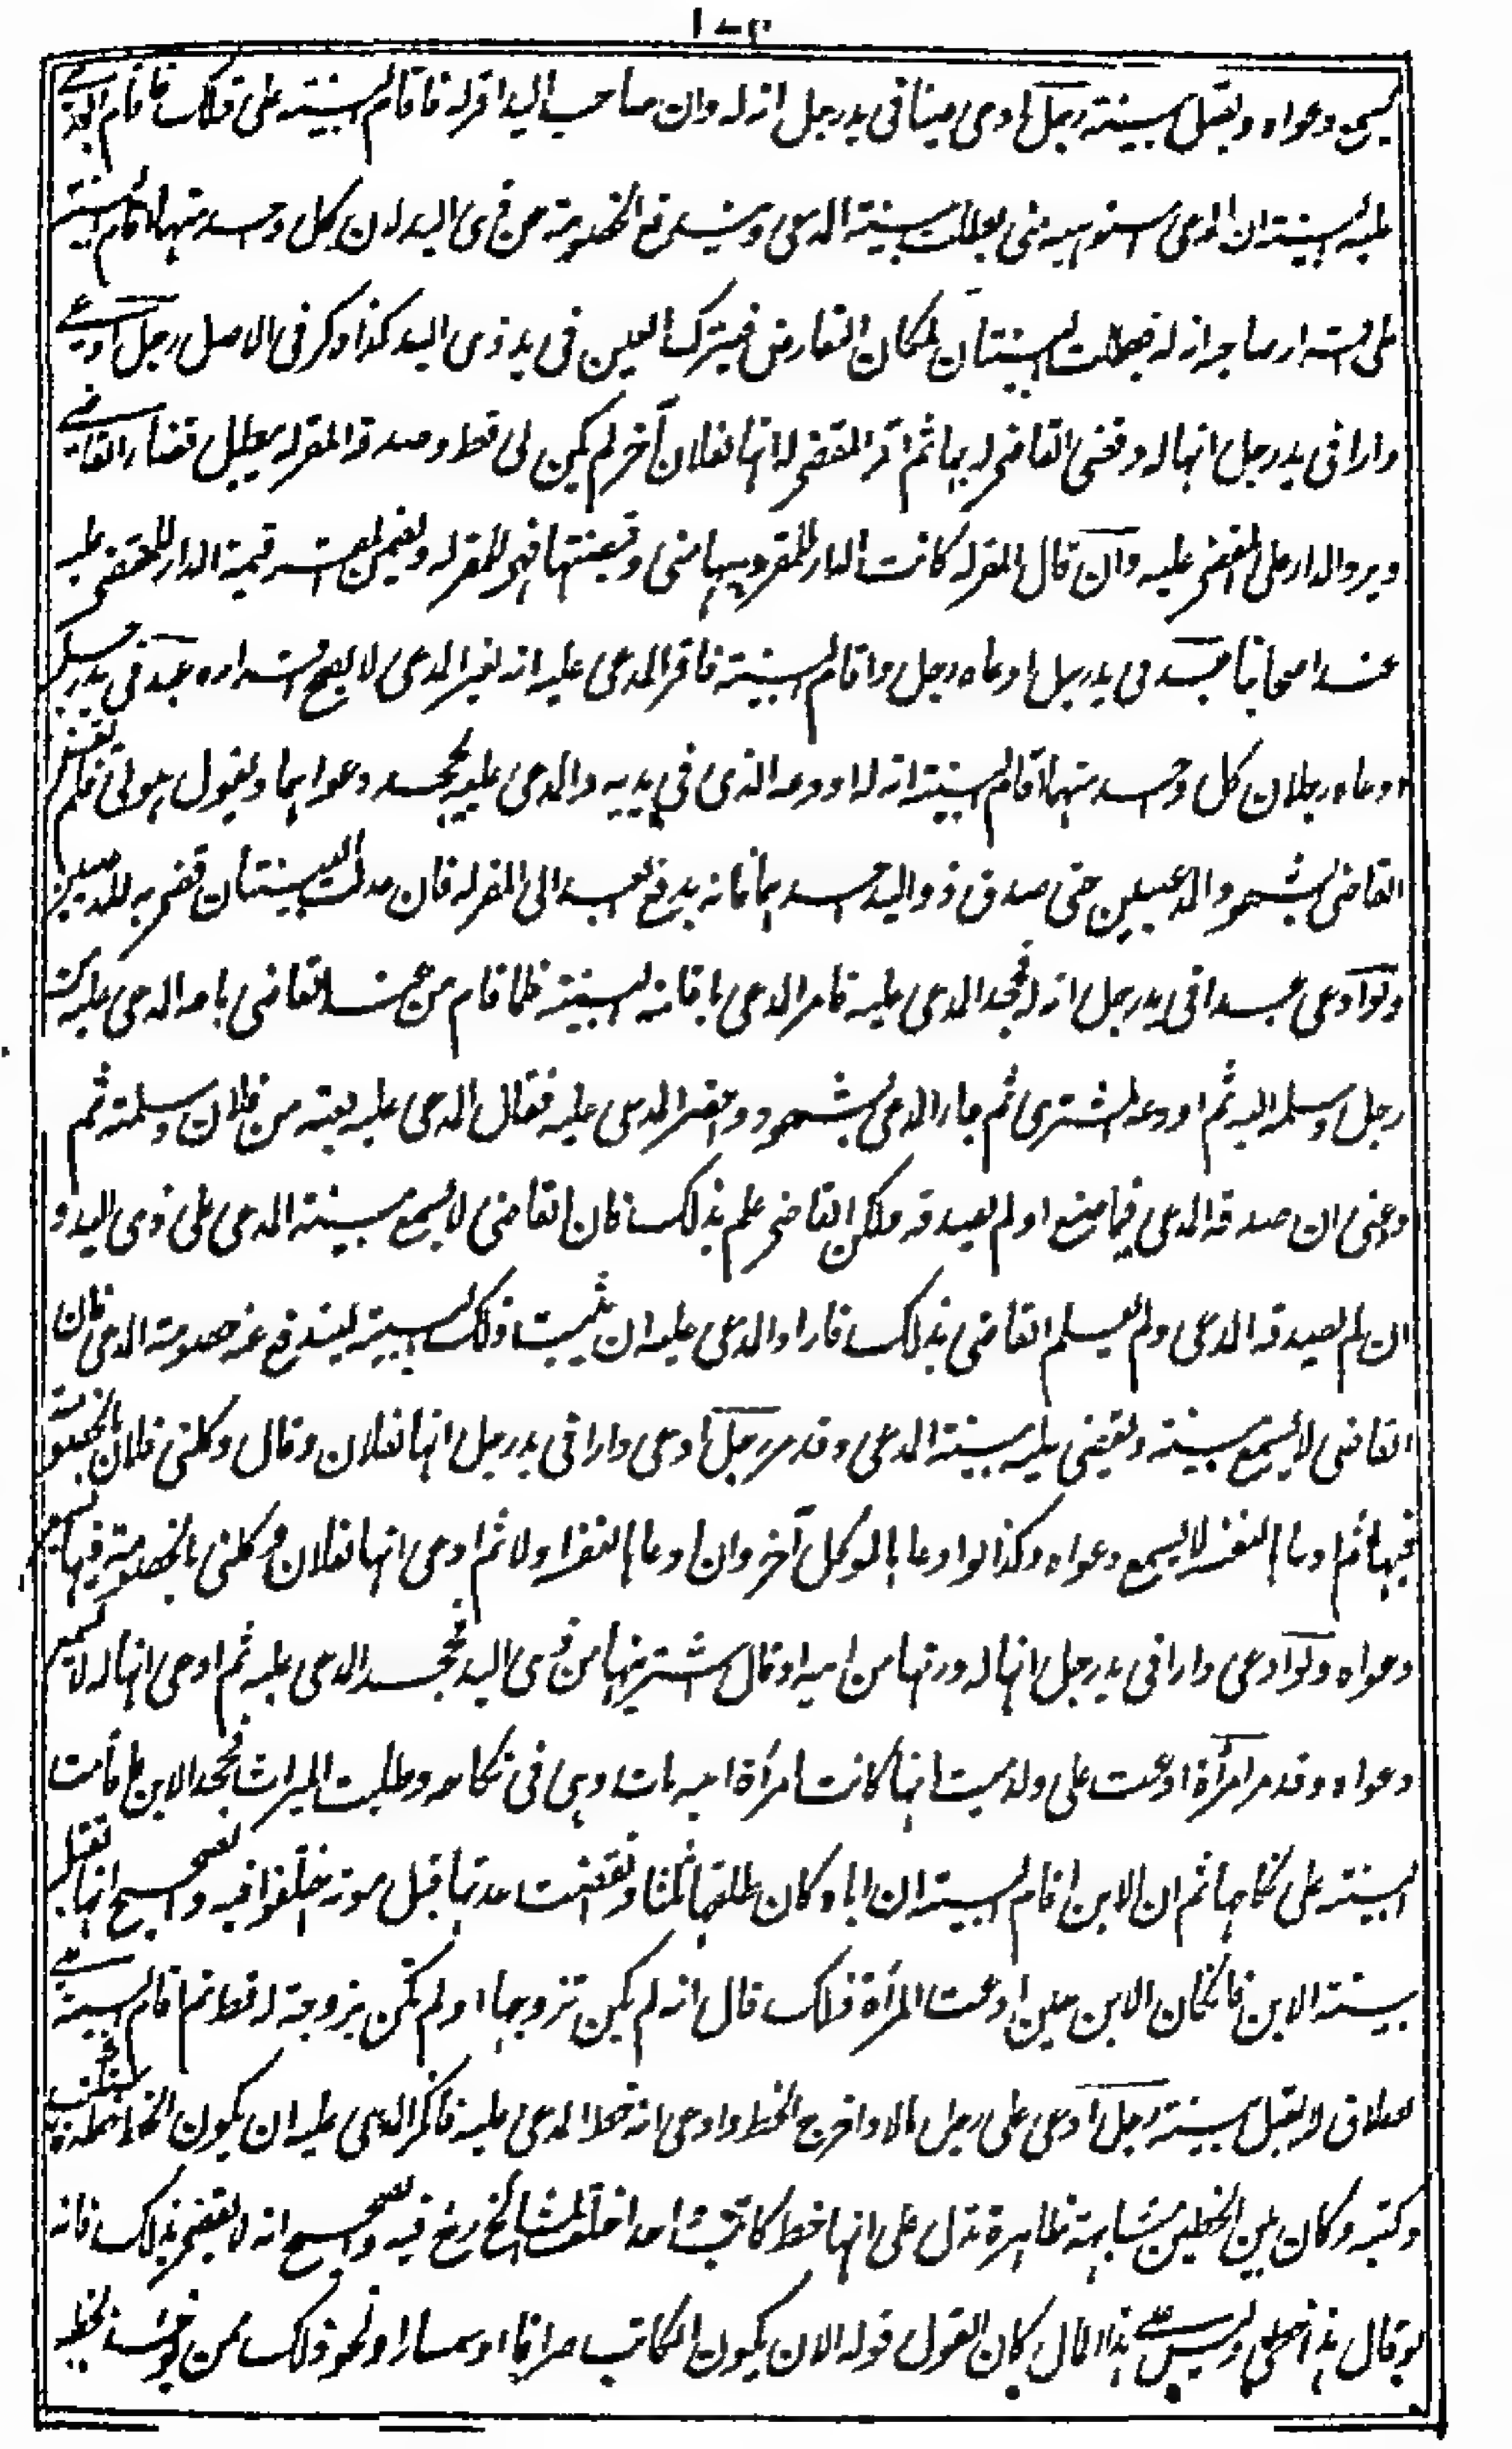 يسمع دعواه وتقبل بينته رجل ادعى عينا في يد رجل انه له وان صاحب اليد اقر له فاقام البينة على ذلك فاقام المدعى
عليه البينة ان المدعى استوهبه منى بطلت بينة المدعى وتندفع الخصومة عن ذى اليد لان كل واحد منهما اقام البينة
على اقرار صاحبه انه له فبطلت البينتان لمكان التعارض فيترك العين في يد ذى اليد كذا ذكر في الاصل رجل ادعى
دارا في يد رجل انها له وقضى القاضى له بها ثم اقر المقضى له انها لفلان آخر لم يكن لى قط وصدقه المقر له يبطل قضاء القاضى
ويرد الدار على المقضى عليه وان قال المقر له كانت الدار للمقر وهبها منى وقبضتها فهى للمقر له ويضمن المقر قيمة الدار للمقضى عليه
عند اصحابنا عبد في يد رجل ادعاه رجل واقام البينة فاقر المدعى عليه انه لغير المدعى لا يصح اقراره عبد في يد رجل
ادعاه رجلان كل واحد منهما اقام البينة انه له اودعه الذى في يديه والمدعى عليه يجحد دعواهما ويقول هو لى فلم يقض
القاضى بشهود المدعيين حتى صدق ذو اليد احدهما فانه يدفع العبد الى المقر له فان عدلت البينتان قضى به للمدعيين
ولو ادعى عبدا في يد رجل انه له فجحد المدعى عليه فامر المدعى باقامة البينة فلما قام من عند القاضى باعه المدعى عليه من
رجل وسلمه اليه ثم اودعه المشترى ثم جاء المدعى بشهود وحضر المدعى عليه فقال المدعى عليه بعته من فلان وسلمته ثم
اودعنى ان صدقه المدعى فيما صنع او لم يصدقه ولكن القاضى علم بذلك فان القاضى لا يسمع بينة المدعى على ذى اليد و
ان لم يصدقه المدعى ولم يعلم القاضى بذلك فاراد المدعى عليه ان يثبت ذلك بالبينة ليندفع عنه خصومة المدعى فان
القاضى لا يسمع بينته ويقضى عليه ببينة المدعى وقد مر رجل ادعى دارا في يد رجل انها لفلان وقال وكلنى فلان بالخصومة
فيها ثم ادعاها لنفسه لا يسمع دعواه وكذا لو ادعاها لموكل آخر وان ادعاها لنفسه اولا ثم ادعى انها لفلان وكلنى بالخصومة فيها يسمع
دعواه ولو ادعى دارا في يد رجل انها له ورثها من ابيه او قال اشتريتها من ذى اليد فجحد المدعى عليه ثم ادعى انها له لا يسمع
دعواه وقد مر امرأة ادعت على ولد ميت انها كانت امرأة ابيه مات وهى في نكاحه وطلبت الميراث فجحد الابن فاقامت
البينة على نكاحها ثم ان الابن اقام البينة ان اباه كان طلقها ثلثا وانقضت عدتها قبل موته اختلفوا فيه والصحيح انها تقبل
بينة الابن فان كان الابن حين ادعت المرأة ذلك قال انه لم يكن تزوجها او لم تكن بزوجة له قط ثم اقام البينة على
الطلاق لا يقبل بينته رجل ادعى على رجل مالا واخرج الخط وادعى انه خط المدعى عليه فانكر المدعى عليه ان يكون الخط خطه
وكتبه وكان بين الخطين مشابهة ظاهرة تدل على انها خط كاتب واحد اختلف المشايخ رح فيه والصحيح انه لا يقضى بذلك فانه
لو قال هذا خطى وليس على هذا المال كان القول قوله الا ان يكون الكاتب صرافا او سمسارا ونحو ذلك ممن يؤخذ بخطه